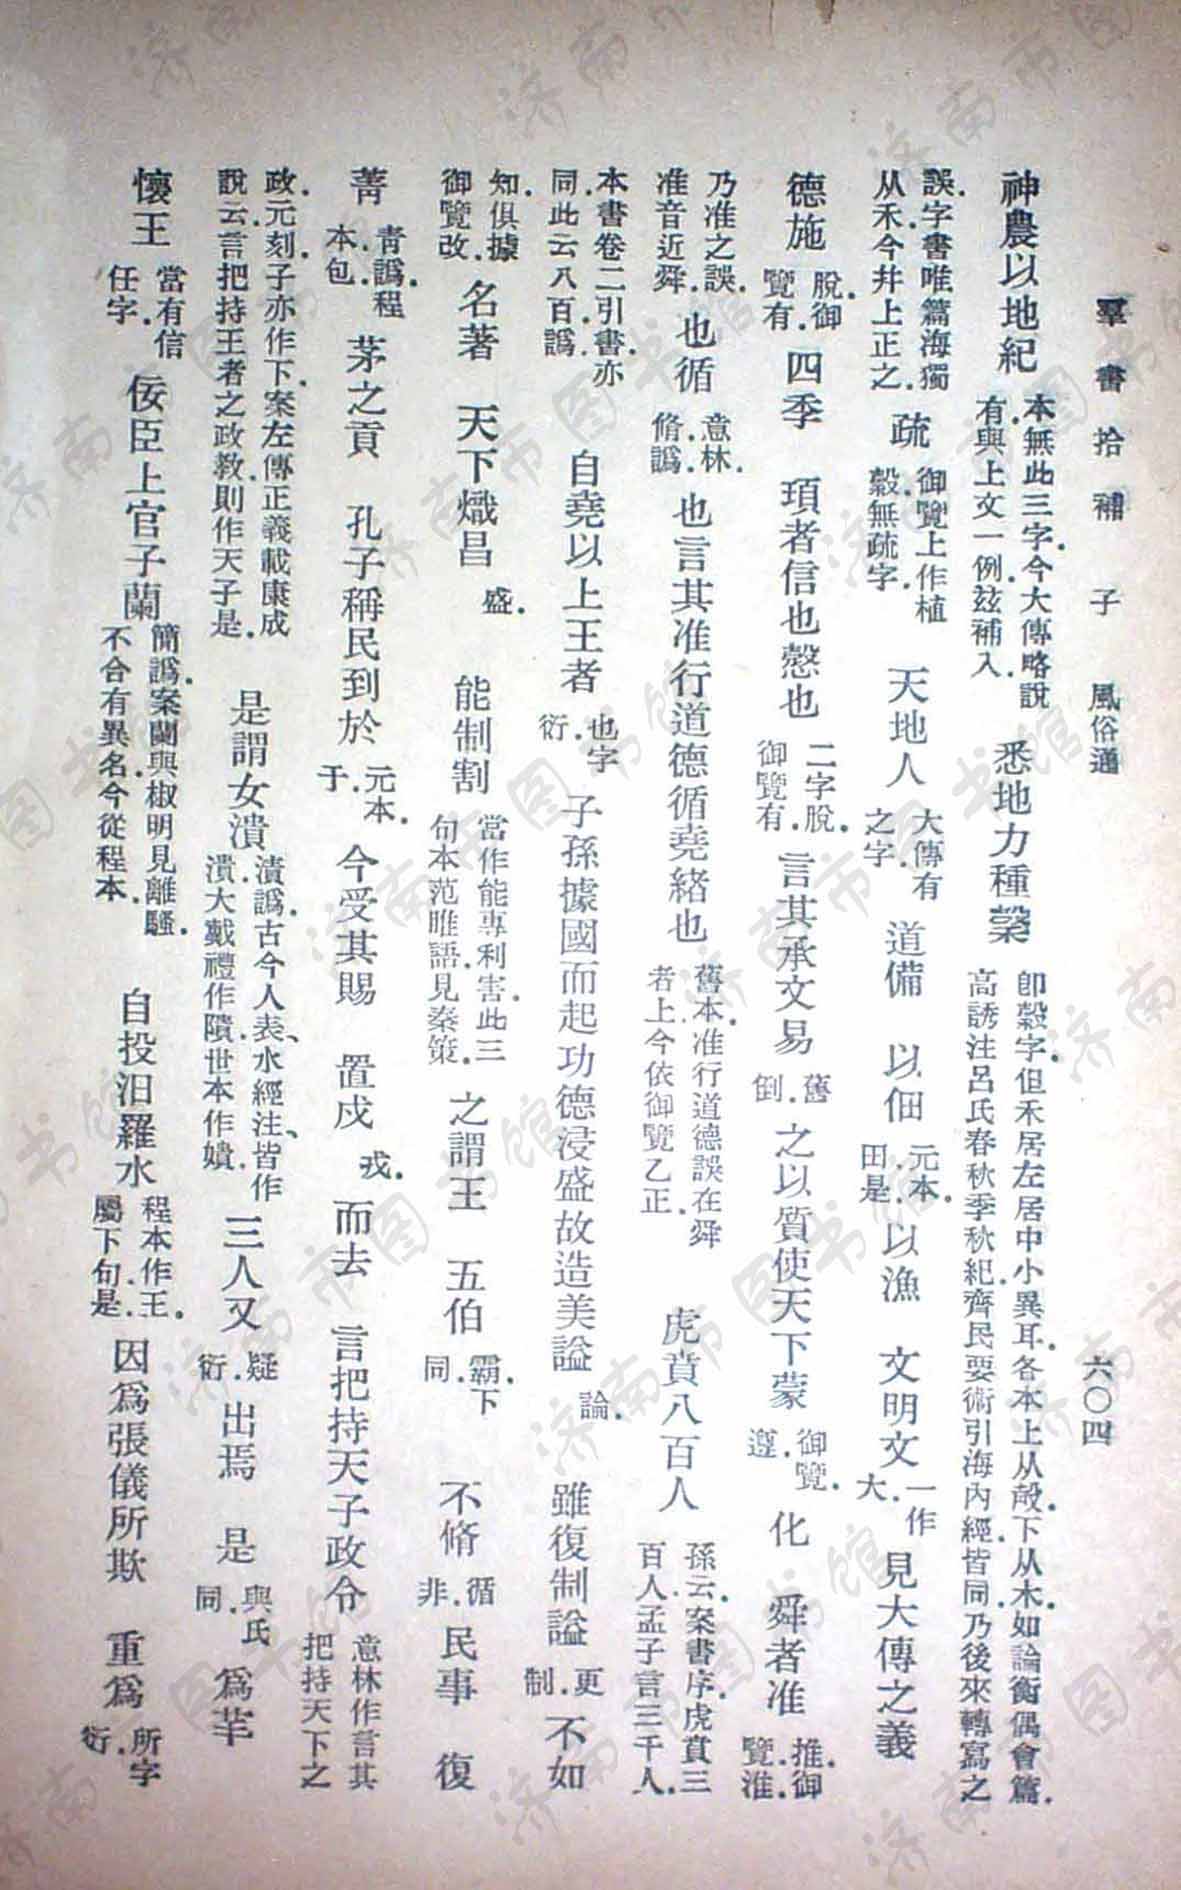 羣書拾補 子 風俗通 六〇四
神農以地紀 本無此三字.今大傳略說有.與上文一例.玆補入. 悉地力種穀 卽穀字.但禾居左居中小異耳.各本上从殸.下从木.如論衡偶會篇.高誘注呂氏春秋季秋紀.齊民要術引海內經.皆同.乃後來轉寫之
誤.字書唯篇海獨从禾.今幷上正之. 疏 御覽上作植穀.無疏字. 天地人 大傳有之字. 道備 以佃 元本.田.是. 以漁 文明文 一作大. 見大傳之義
德施 脫.御覽有. 四季 頊者信也慤也 二字脫.御覽有. 言其承文易 舊倒. 之以質使天下蒙 御覽.遵. 化 舜者准 推.御覽.淮.
乃准之誤.准音近舜. 也循 意林.脩.譌. 也言其准行道德循堯緒也 舊本.准行道德誤在舜者上.今依御覽乙正. 虎賁八百人 孫云.案書序.虎賁三百人.孟子言三千人.
本書卷二引書.亦同.此云八百.譌. 自堯以上王者 也字衍. 子孫據國而起功德浸盛故造美謚 論. 雖復制謚 更.制. 不如
知.俱據御覽改. 名著 天下熾昌 盛. 能制割 當作能專利害.此三句本范睢語.見秦策. 之謂王 五伯 霸.下同. 不脩 循.非. 民事 復
菁 靑.譌.程本.包. 茅之貢 孔子稱民到於 元本.于. 今受其賜 置戍 戎. 而去 言把持天子政令 意林作言其把持天下之
政.元刻.子亦作下.案左傳正義載康成說云.言把持王者之政教.則作天子是. 是謂女潰 漬.譌.古今人表、水經注、皆作潰.大戴禮作隤.世本作嬇. 三人又 疑衍. 出焉 是 與氏同. 爲芈
懷王 當有信任字. 佞臣上官子蘭 簡.譌.案蘭與椒明見離騷.不合有異名.今從程本. 自投汨羅水 程本作王.屬下句.是. 因爲張儀所欺 重爲 所字衍.